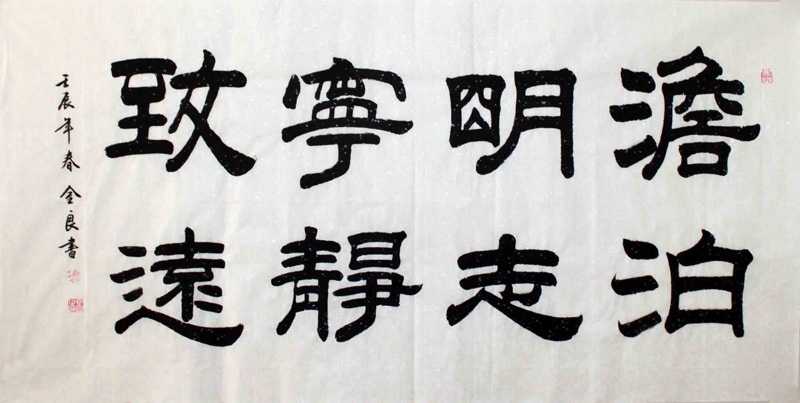 澹泊
明志
寧靜
致遠
壬辰年春金良書